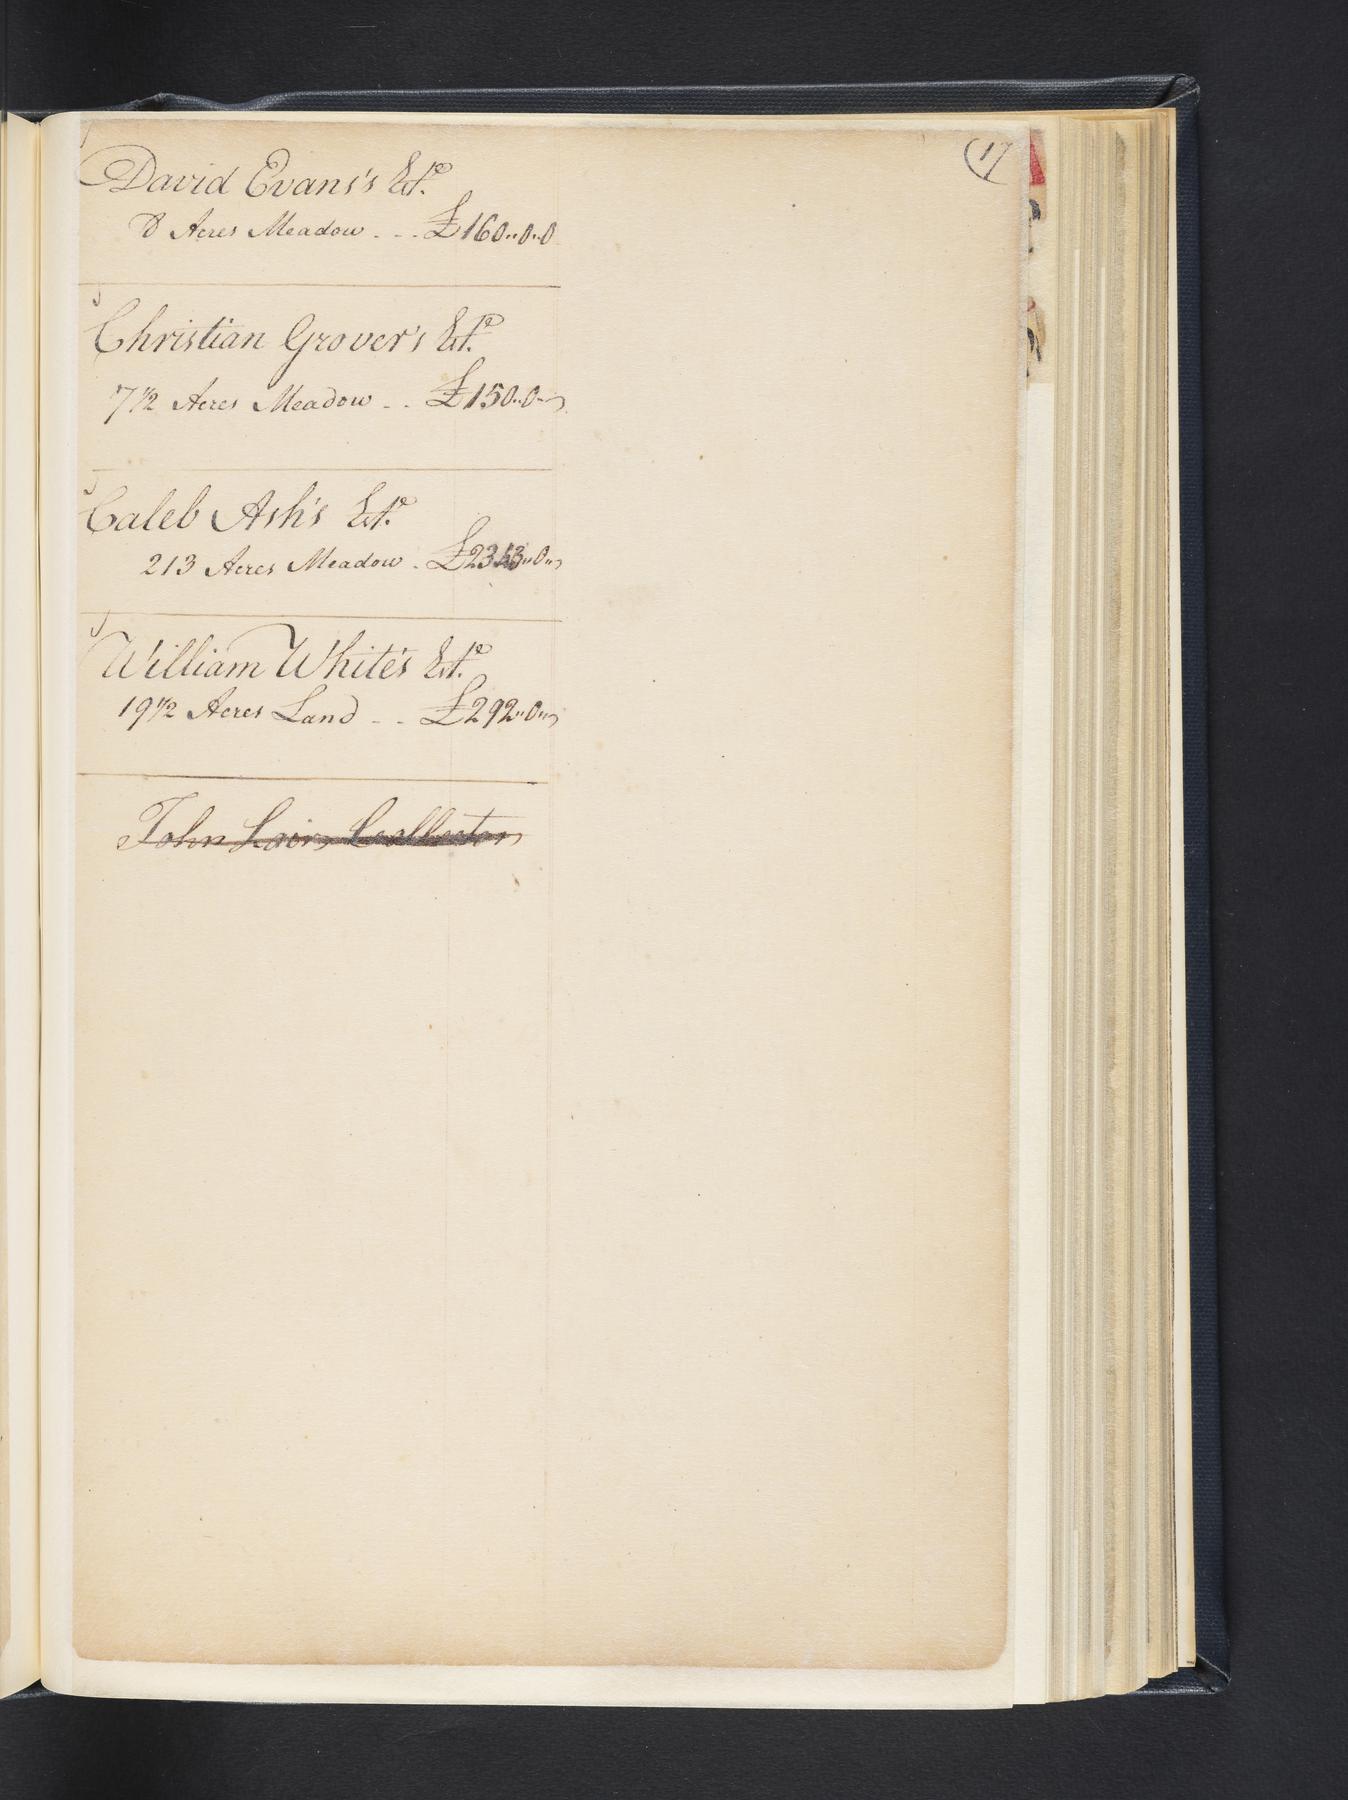 17
David Evans's Este.
8 Acres Meadow - - - £160..0..0
Christian Grover's Este.
7 1/2 Acres Meadow - - £150..0..
Caleb Ash's Este.
213 Acres Meadow - £2343..0..
William White's Este.
19 1/2 Acres Land - - £292..0..
John Collector